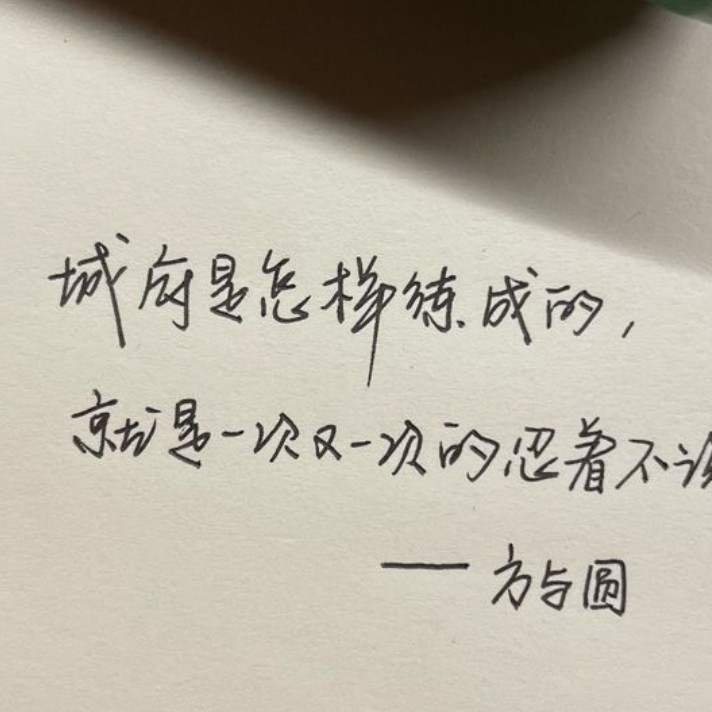 城府是怎样练成的，
就是一次又一次的忍着不
——方与圆